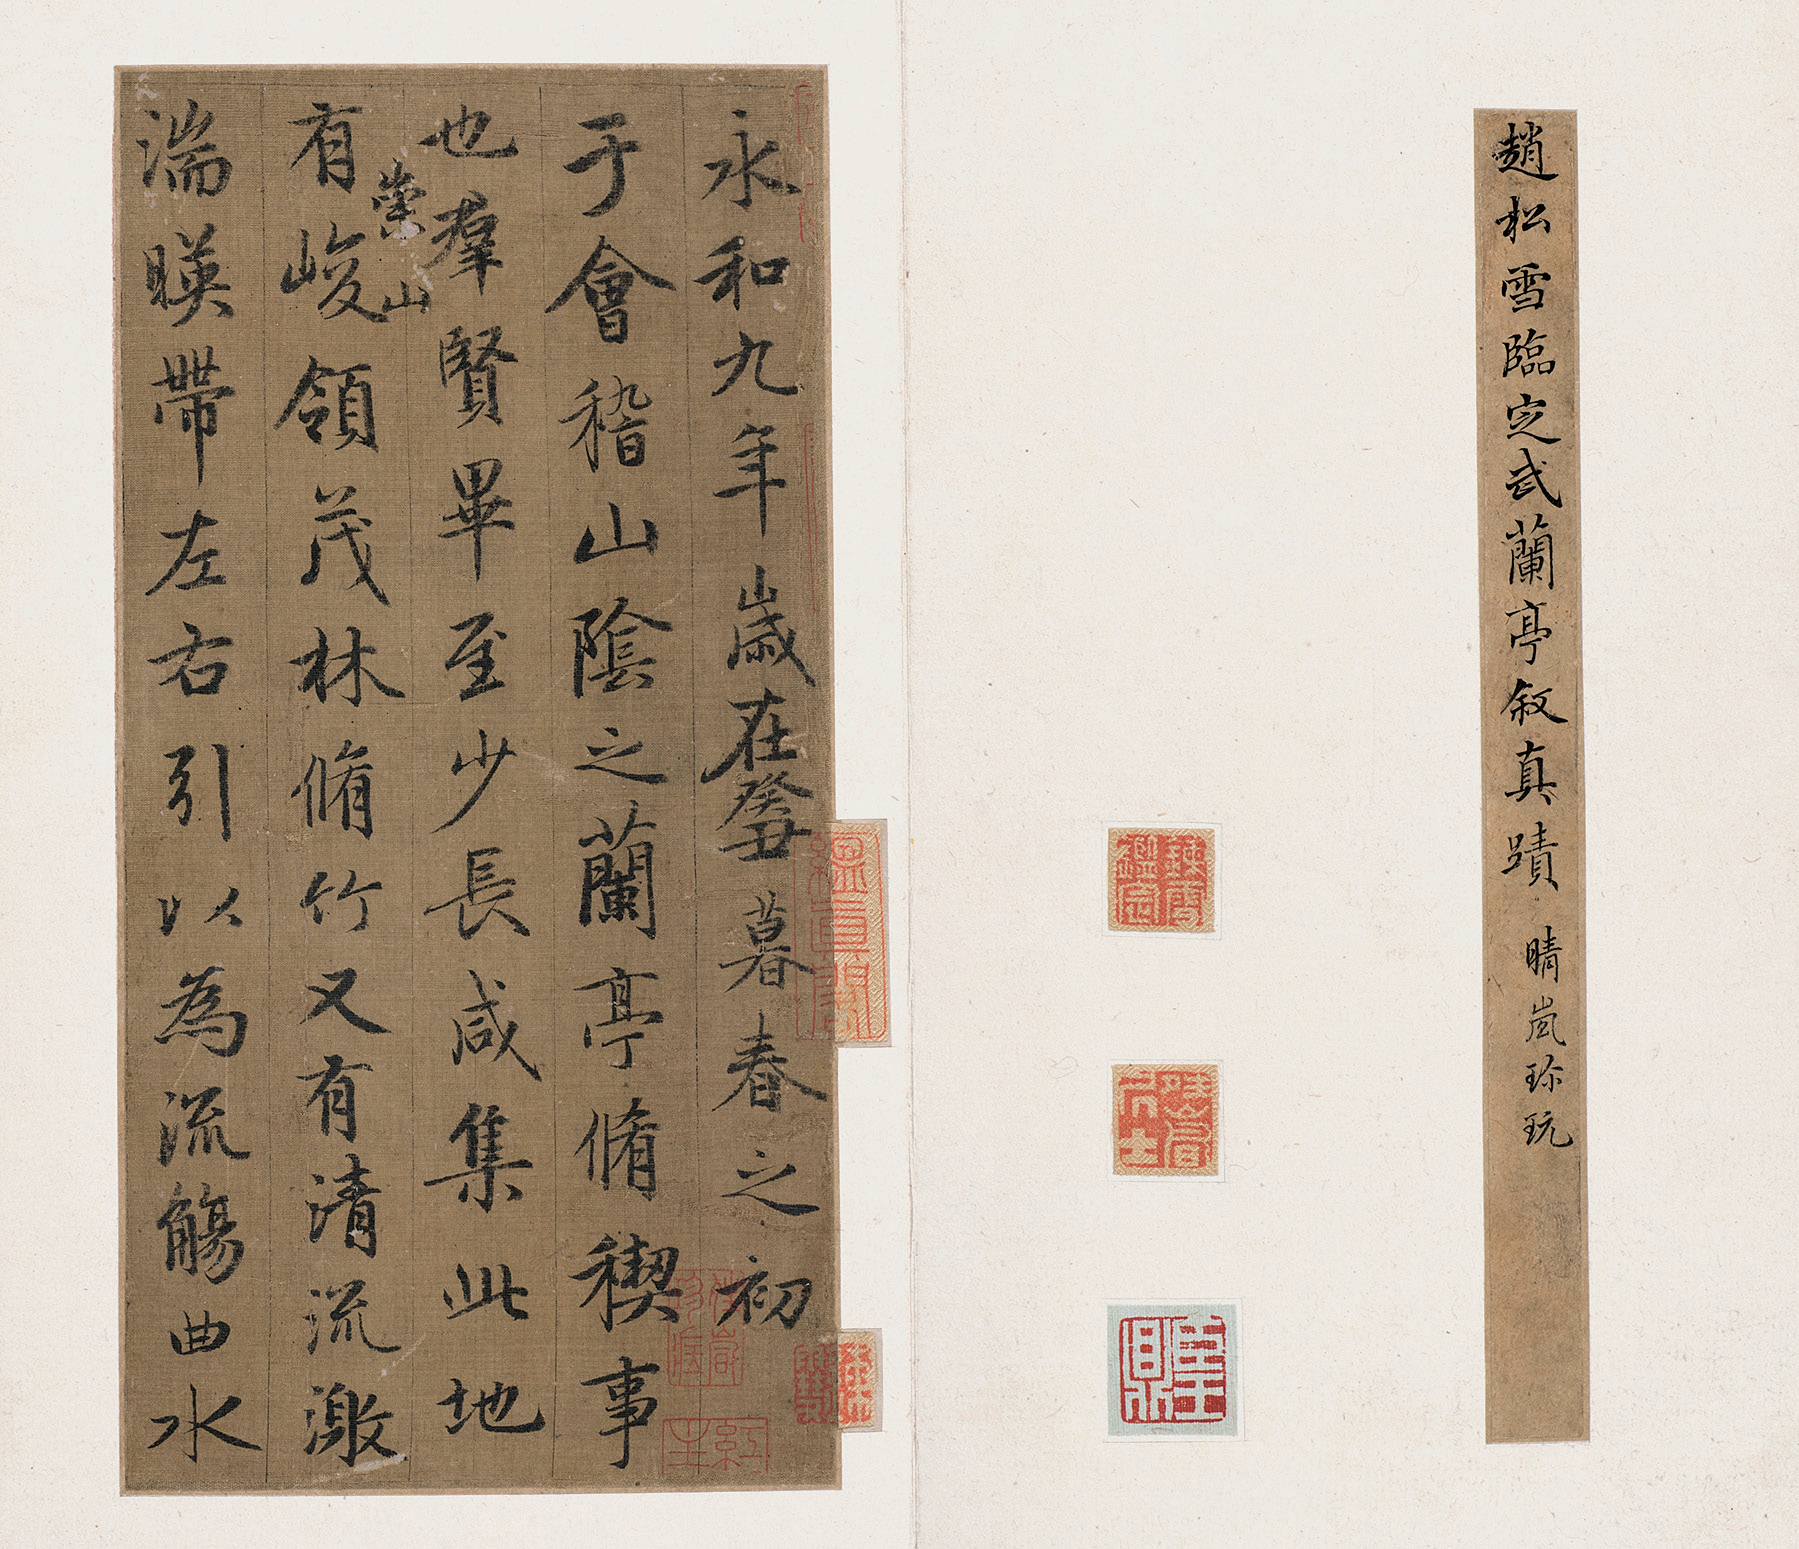 趙松雪臨定武蘭亭叙真蹟 晴嵐珎玩
永和九年歲在癸丑暮春之初
于會稽山陰之蘭亭脩稧事
也羣賢畢至少長咸集此地
崇山
有峻領茂林脩竹又有清流激
湍暎帶左右引以為流觴曲水